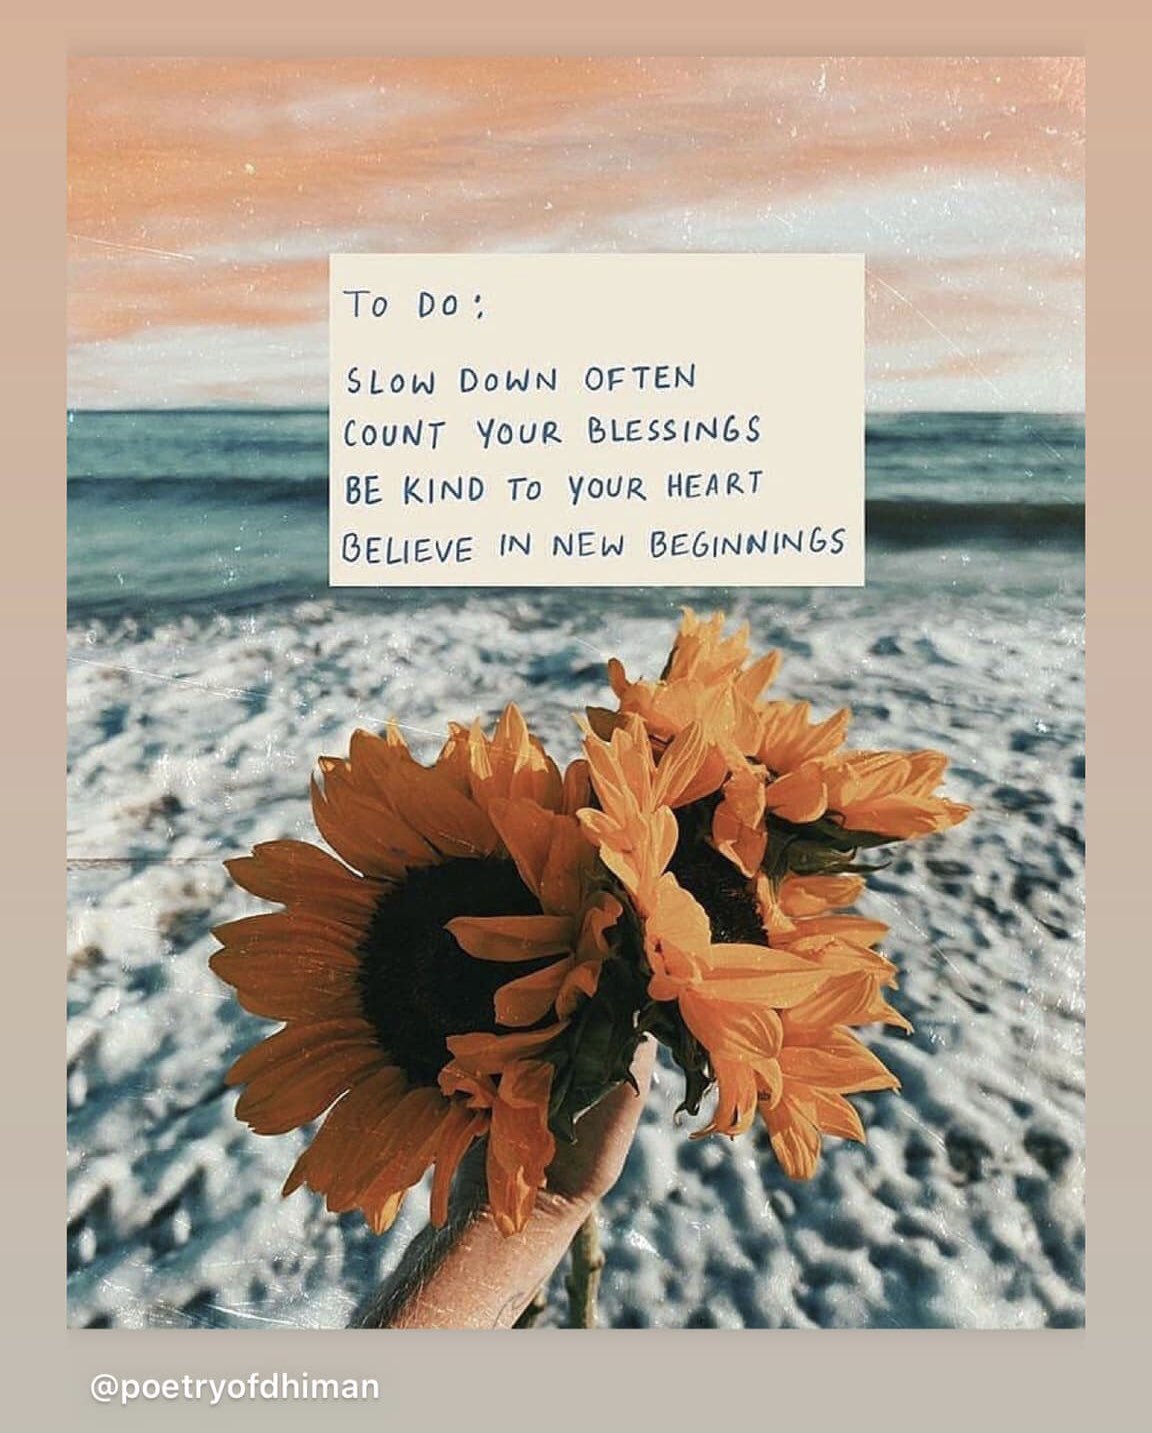 TO DO:
SLOW DOWN OFTEN
COUNT YOUR BLESSINGS
BE KIND TO YOUR HEART
BELIEVE IN NEW BEGINNINGS
@poetryofdhiman